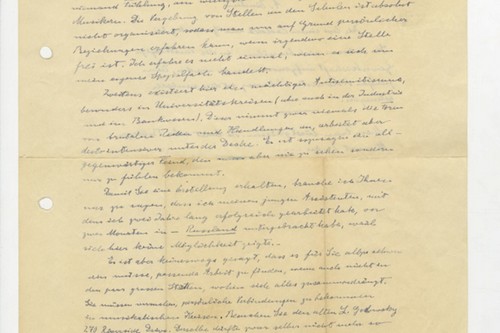 niemand Fühlung, am wenigsten
Musikern. Die Vergebung von Stellen an den Schulen ist absolut
nicht organisiert, sodass man nur auf Grund persönlicher
Beziehungen erfahren kann, wenn irgendwo eine Stelle
frei ist. Ich erfahre es nicht einmal, wenn es sich um
mein eigenes Spezialfach handelt.
Zweitens existiert hier ein mächtiger Antisemitismus,
besonders in Universitätskreisen (aber auch in der Industrie
und im Bankwesen). Dieser nimmt zwar niemals die Form
von brutalen Reden und Handlungen an, arbeitet aber
desto intensiver unter der Decke. Es ist sozusagen ein all-
gegenwärtiger Feind, den man aber nie zu sehen sondern
nur zu fühlen bekommt.
Damit Sie eine Vorstellung erhalten, brauche ich Ihnen
nur zu sagen, dass ich meinen jungen Assistenten, mit
dem ich zwei Jahre lang erfolgreich gearbeitet habe, vor
zwei Monaten in Russland untergebracht habe, weil
sich hier keine Möglichkeit zeigte.
Es ist aber keineswegs gesagt, dass es für Sie allzu schwer
sein müsse, passende Arbeit zu finden, wenn auch nicht in
den paar grossen Städten, wohin sich alles zusammendrängt.
Sie müssen persönliche Verbindungen zu bekommen
in musikalischen Kreisen. Besuchen Sie den alten L. Godowsky
270 Riverside Drive. Derselbe dürfte zwar selber nicht mehr so